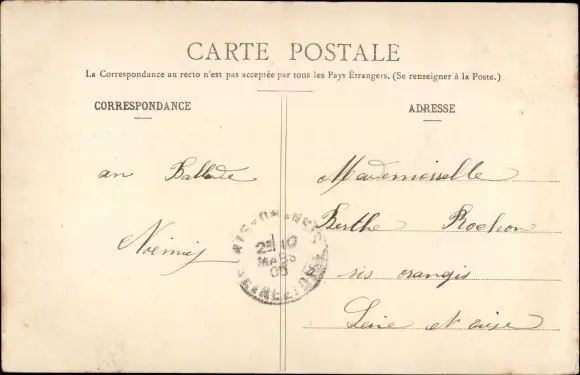 CARTE POSTALE
La Correspondance au recto n'est pas acceptée par tous les Pays Étrangers. (Se renseigner à la Poste.)
CORRESPONDANCE
ADRESSE
an Ballade
Noémis
Mademoiselle
Berthe Rochon
ris orangis
Seine et oise
RIS-ORANGIS
MARS
SEINE-ET-OISE